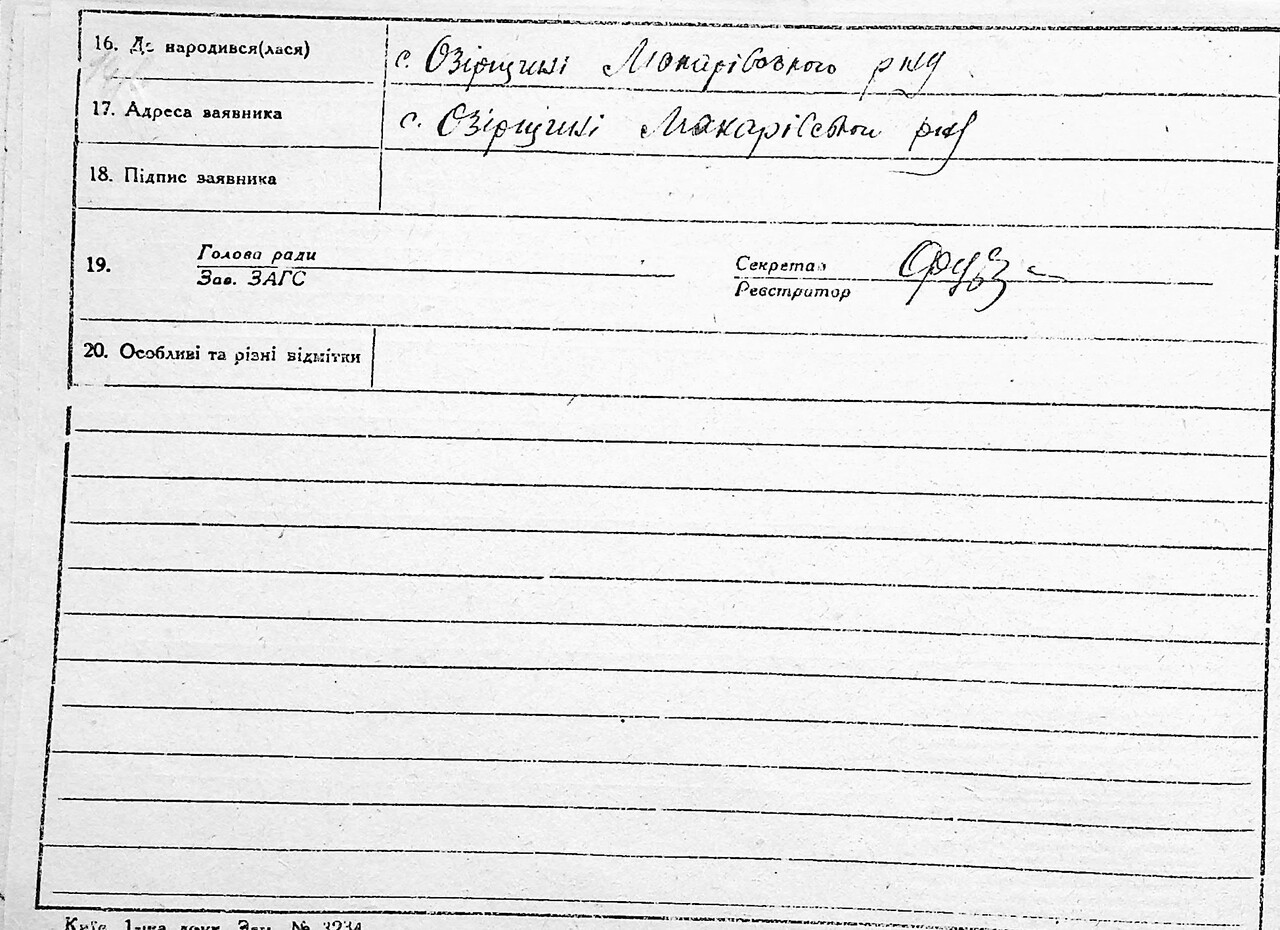 16. Де народився(лася) с. Озірщині Макарівського р-ну
17. Адреса заявника с. Озірщині Макарівського р-ну
18. Підпис заявника
19. Голова ради Секретар
Зав. ЗАГС Реєстратор
20. Особливі та різні відмітки
Київ, 1-ша друк. Зам. № 3234